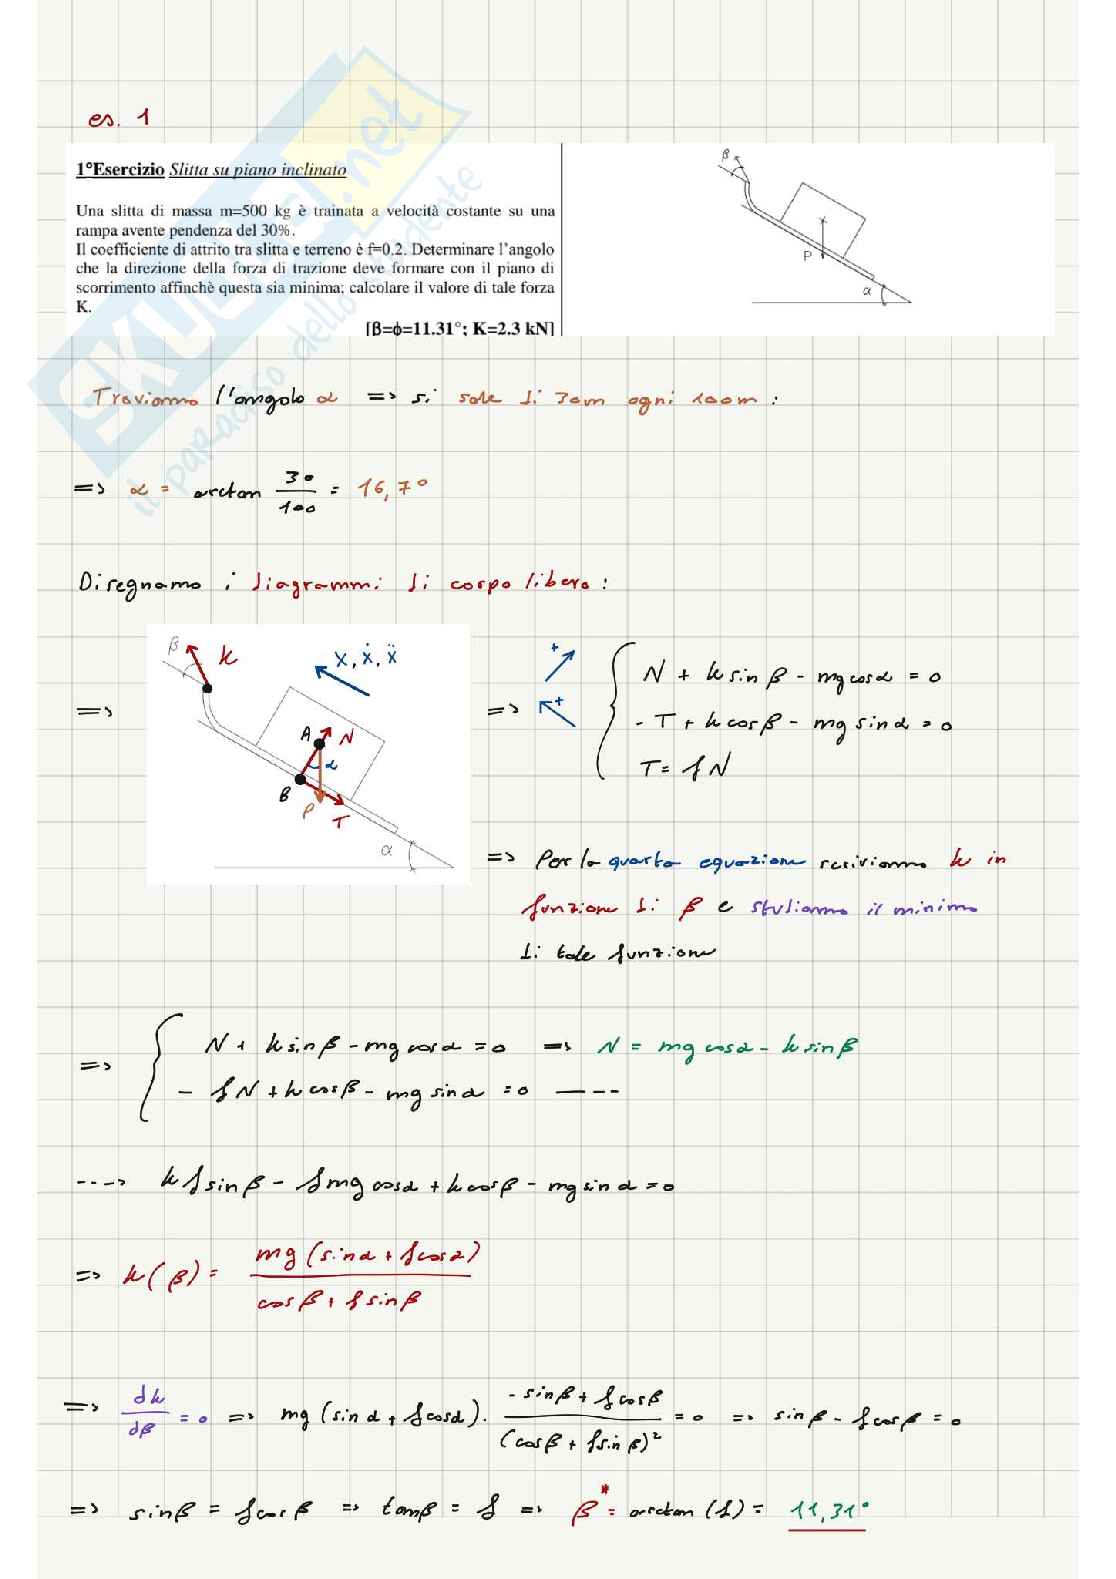 es. 1
1°Esercizio Slitta su piano inclinato
Una slitta di massa m=500 kg è trainata a velocità costante su una
rampa avente pendenza del 30%.
Il coefficiente di attrito tra slitta e terreno è f=0.2. Determinare l'angolo
che la direzione della forza di trazione deve formare con il piano di
scorrimento affinchè questa sia minima; calcolare il valore di tale forza
K.
[β=ϕ=11.31°; K=2.3 kN]
β
P
α
SKUOLA.net
il paradiso dello studente
Troviamo l'angolo α => si sale di 30m ogni 100m :
=> α = arctan 30/100 = 16,7°
Disegnamo i diagrammi di corpo libero :
β k x, ẋ, ẍ
A N α
B P T
α
=>
=> + +
N + k sin β - mg cos α = 0
- T + k cos β - mg sin α = 0
T = f N
=> Per la quarta equazione scriviamo k in
funzione di β e studiamo il minimo
di tale funzione
=> N + k sin β - mg cos α = 0 => N = mg cos α - k sin β
- f N + k cos β - mg sin α = 0 ----
----> k f sin β - f mg cos α + k cos β - mg sin α = 0
=> k(β) = mg (sin α + f cos α) / cos β + f sin β
=> dk/dβ = 0 => mg (sin α + f cos α) · - sin β + f cos β / (cos β + f sin β)² = 0 => sin β - f cos β = 0
=> sin β = f cos β => tan β = f => β* = arctan (f) = 11,31°